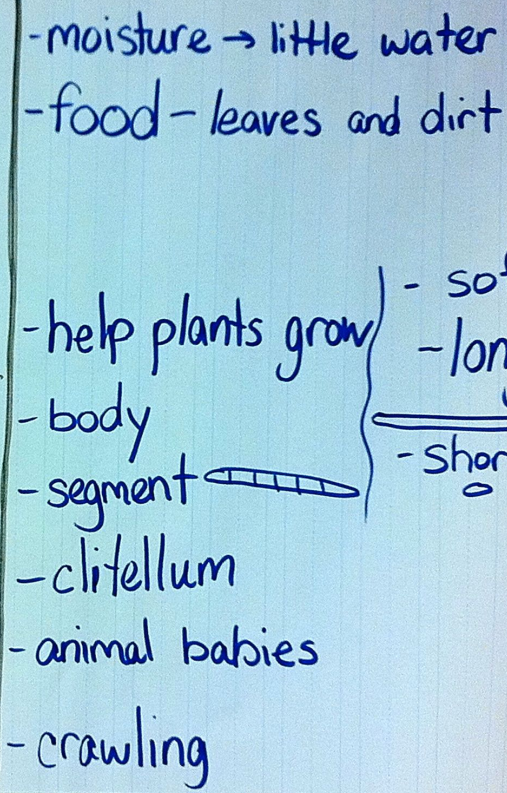 -moisture → little water
-food - leaves and dirt
-help plants grow
-body
-segment
-clitellum
-animal babies
-crawling